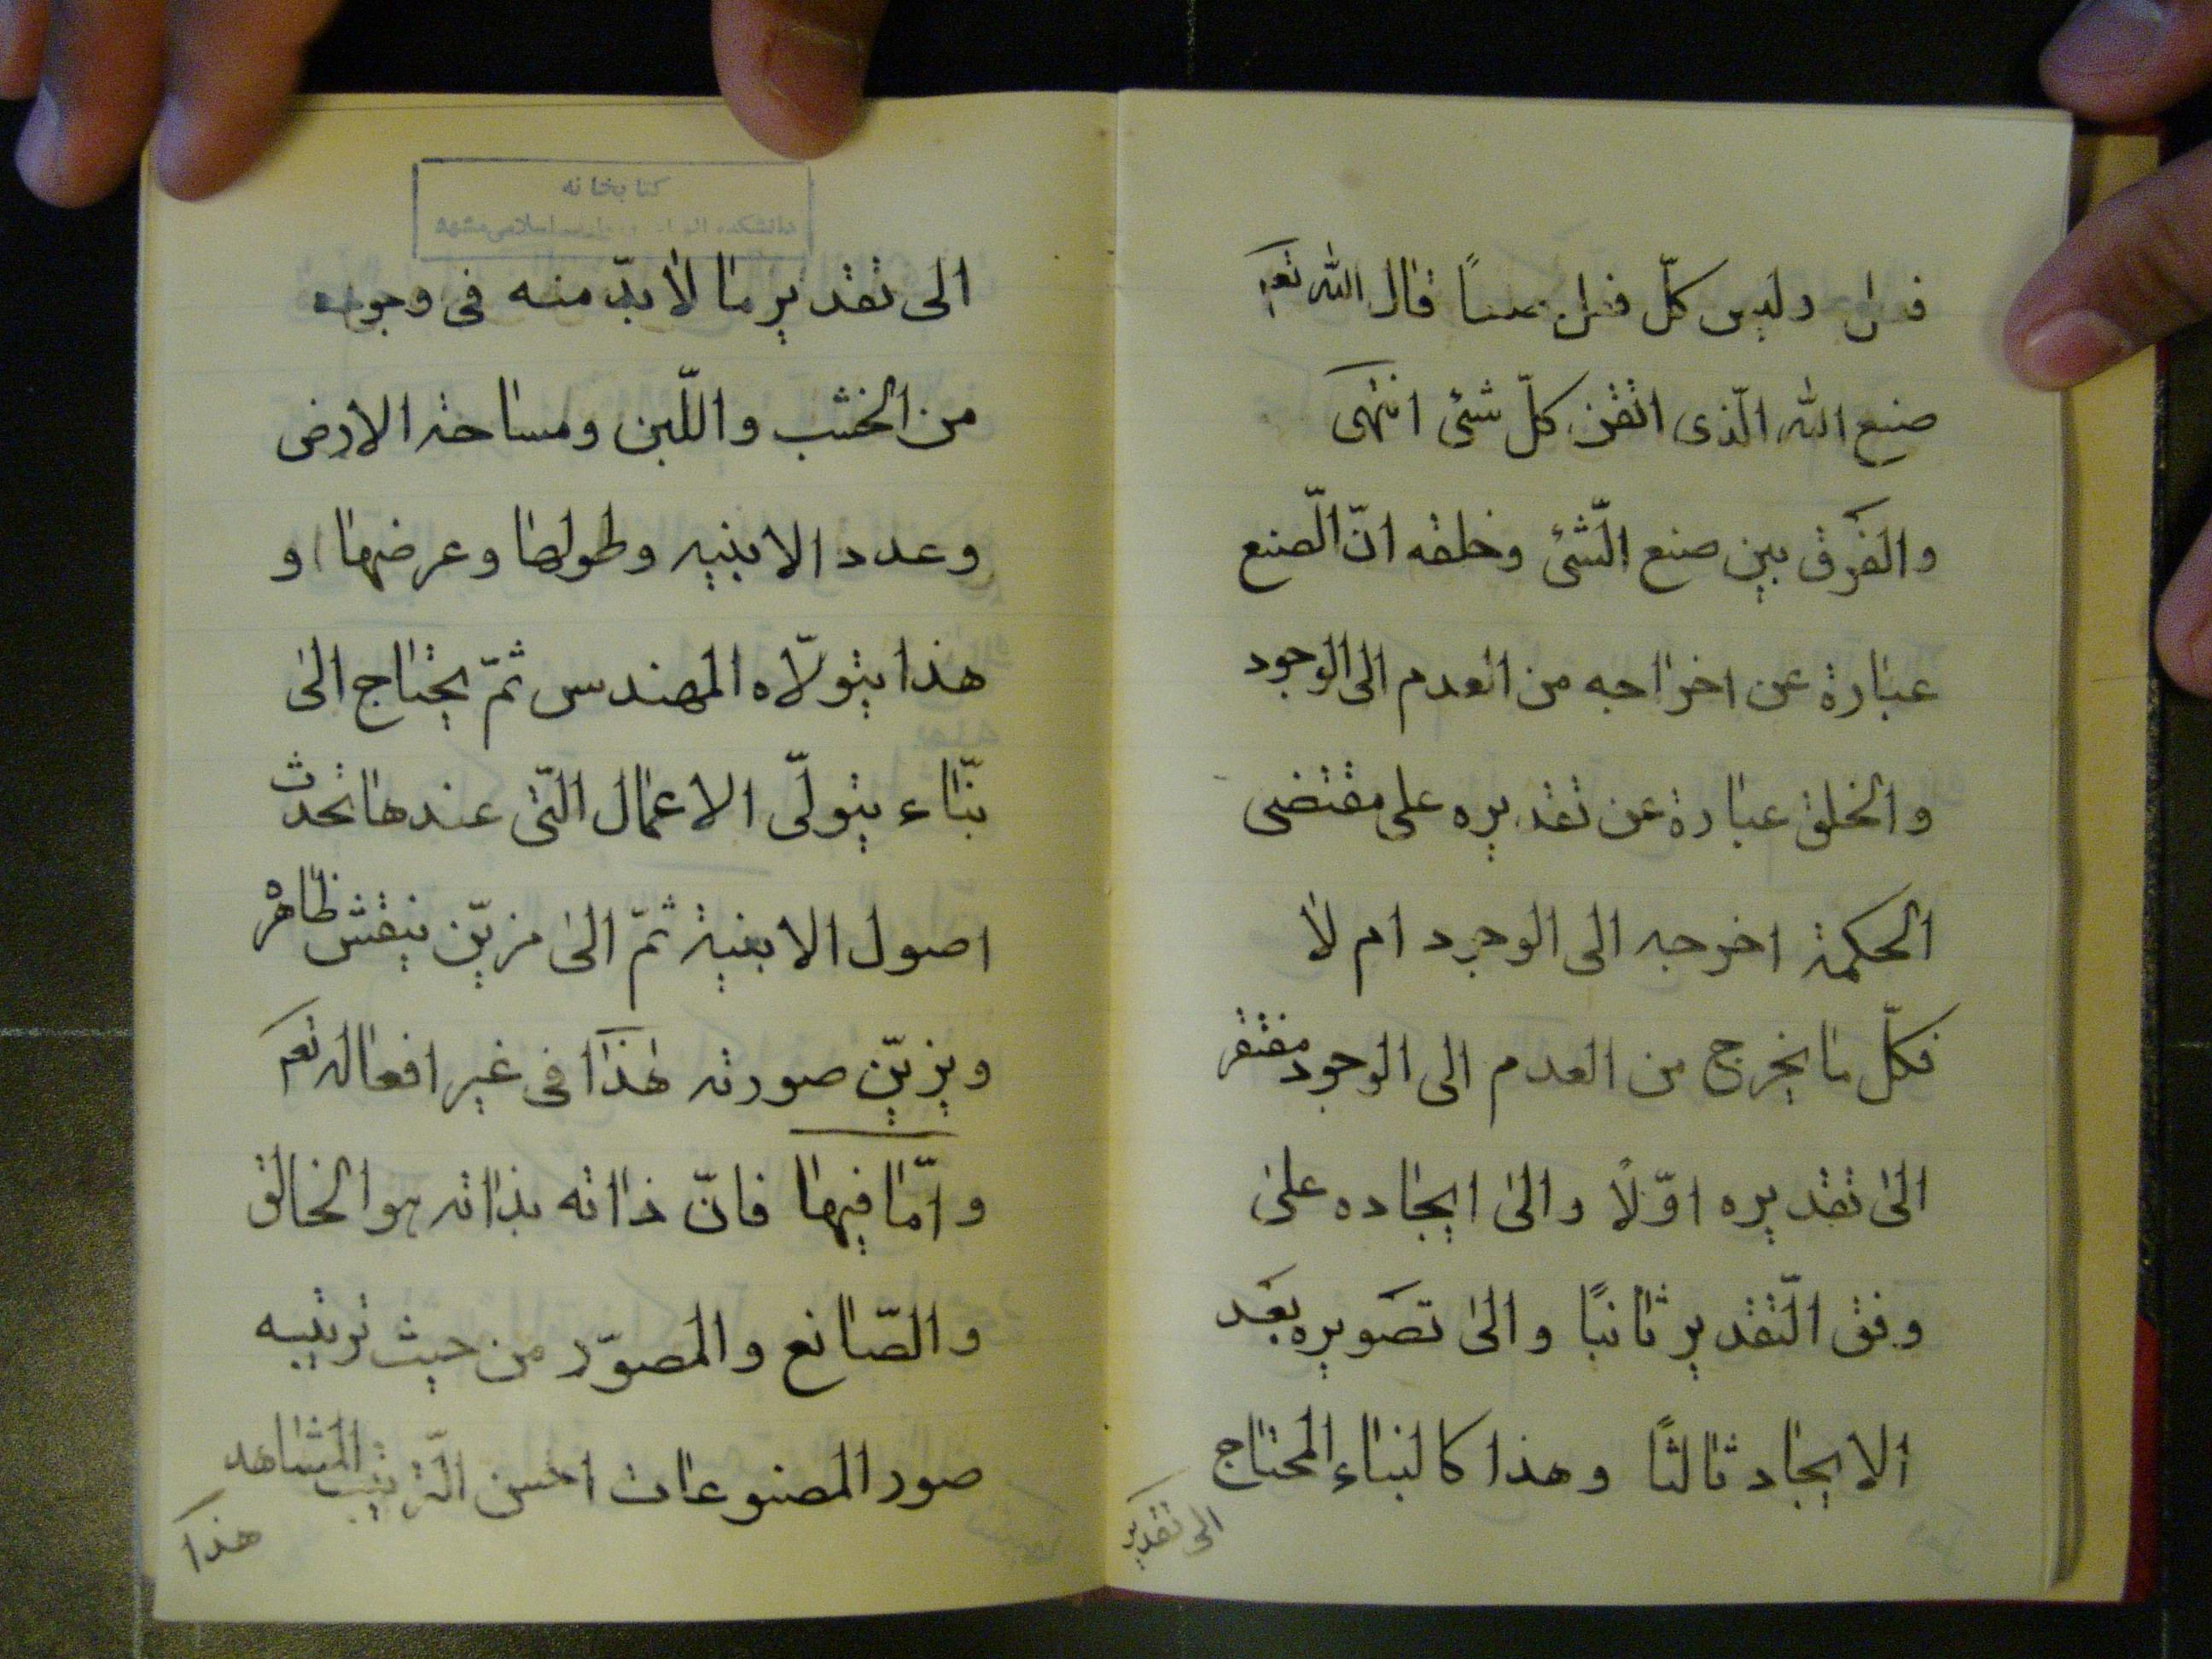 وليس كلّ قال الله تعم
صنع الله الّذى اتقن كلّ شئ انتهى
والفرق بين صنع الشّئ وخلقه انّ الصّنع
عبارة عن اخراجه من العدم الى الوجود
والخلق عبارة عن تقديره على مقتضى
الحكمة اخرجه الى الوجود ام لا
فكلّ ما يخرج من العدم الى الوجود مفتقر
الى تقديره اوّلاً والى ايجاده على
وفق التّقدير ثانيًا والى تصويره بعد
الايجاد ثالثًا وهذا كالبناء المحتاج
الى تقدير
كتابخانه
الى تقدير ما لا بدّ منه فى وجوده
من الخشب واللّبن ومساحة الارض
وعدد الابنيه وطولها وعرضها و
هذا يتولّاه المهندس ثمّ يحتاج الى
بنّاء يتولّى الاعمال الّتى عندها تحدث
اصول الابنية ثمّ الى مزيّن ينقش ظاهره
ويزيّن صورته هذا فى غير افعاله تعم
وامّا فيها فانّ ذاته بذاته هو الخالق
والصّانع والمصوّر من حيث ترتيبه
صور المصنوعات احسن التّرتيب المشاهد
هذا